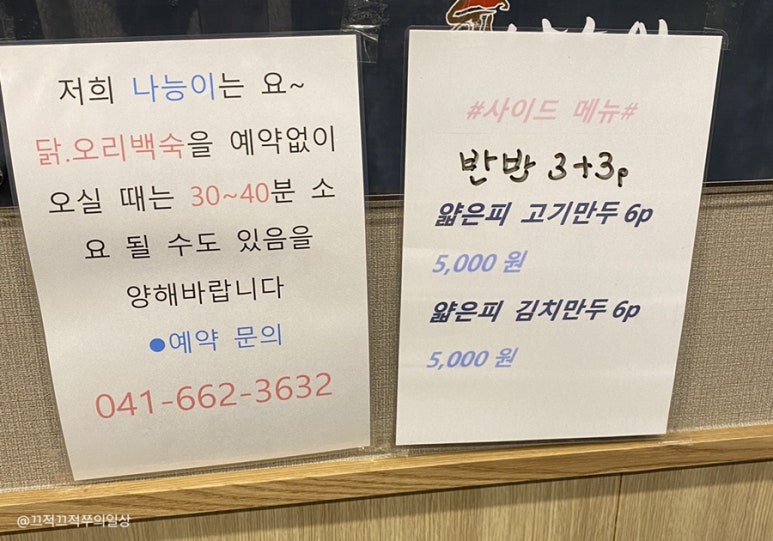 저희 나능이는 요~
닭.오리백숙을 예약없이
오실 때는 30~40분 소
요 될 수도 있음을
양해바랍니다
●예약 문의
041-662-3632
#사이드 메뉴#
반반 3+3p
얇은피 고기만두 6p
5,000 원
얇은피 김치만두 6p
5,000 원
@끄적끄적쭈의일상